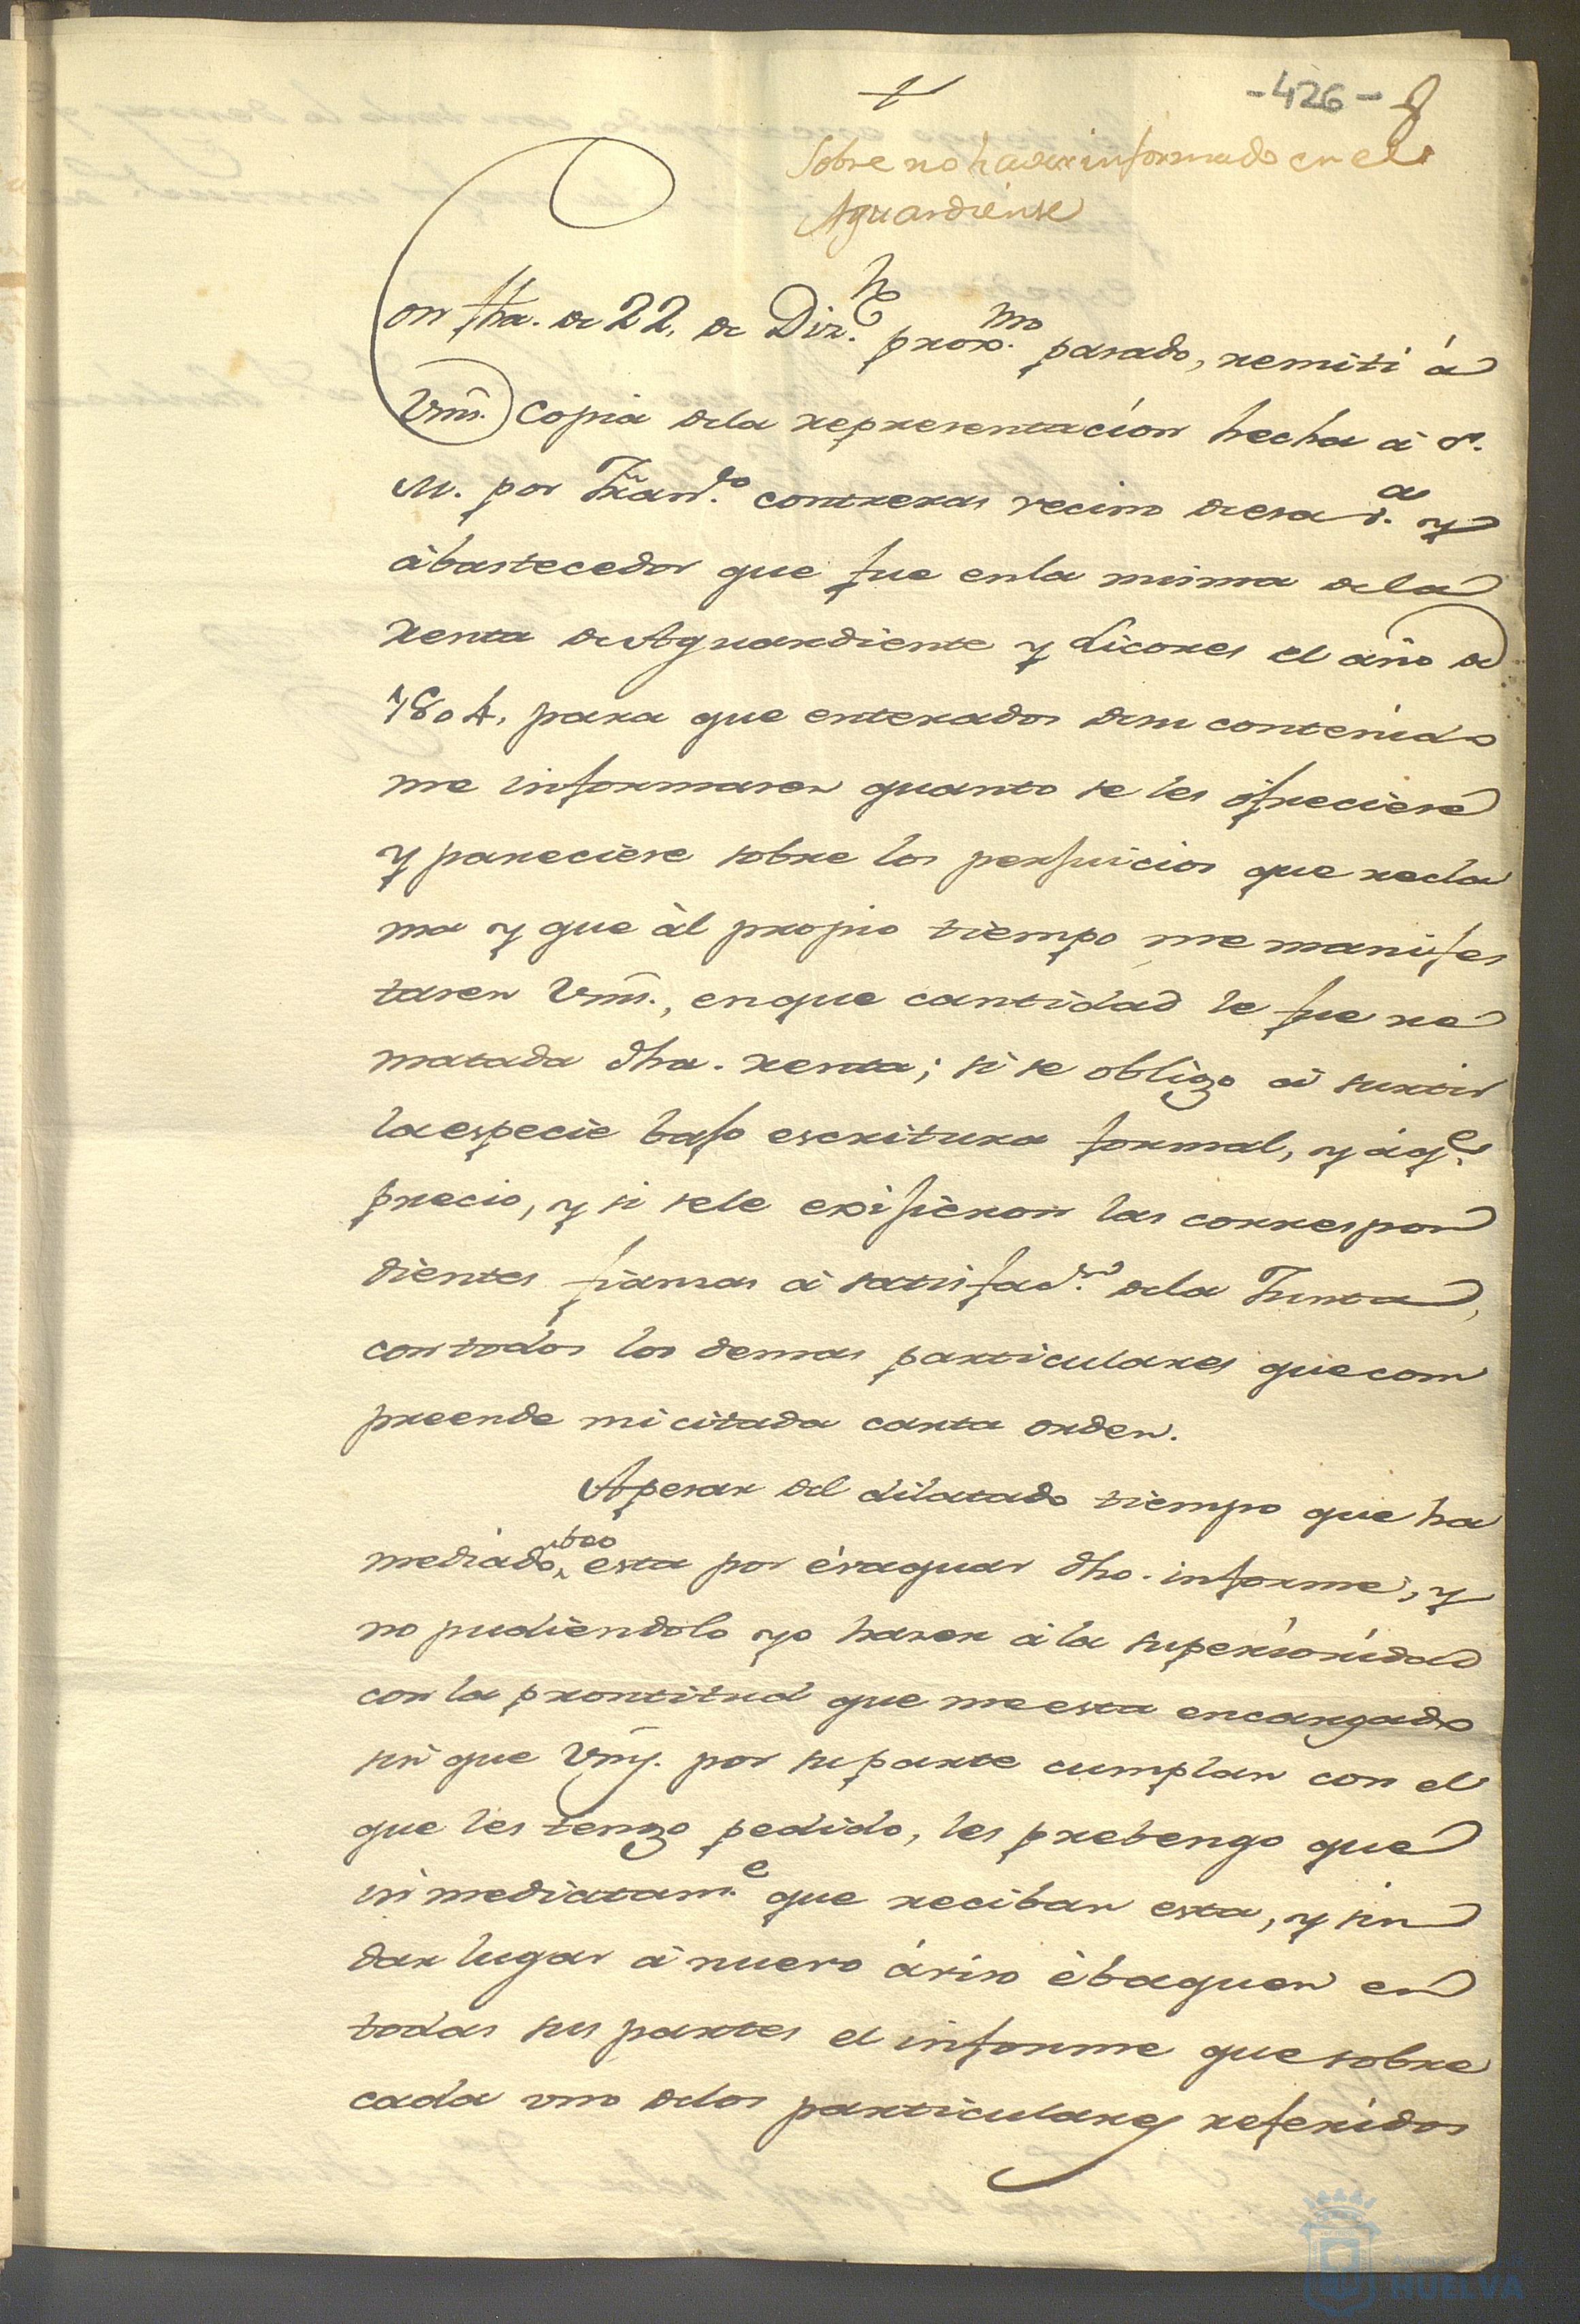 -426- 8
Sobre no haver informado en el
Aguardiente
Con fha. de 22. de Diz.e proxmo. pasado, remiti á
Vms. copia dela representacion hecha á S.
M. por Fran.co contreras vecino de esa V.a y
ábastecedor que fue enla misma dela
renta de Aguardiente y Licores el año de
1804. para que enterados desu contenido
me informasen quanto se les ofreciese
y pareciese sobre los perjuicios que recla
ma y que ál propio tiempo me manifes
tasen Vms., enque cantidad le fue re
matada dha. renta; si se obligo á surtir
la especie bajo escritura formal, y áq.e
precio, y si sele exijieron las correspon
dientes fianzas á satisfac.on dela Junta,
con todos los demas particulares que com
preende mi citada carta orden.
Apesar del dilatado tiempo que ha
mediado, esta por évaguar dho. informe, y
no pudiendolo yo haser á la superioridad
con la prontitud que me esta encargado
sin que Vms. por su parte cumplan con el
que les tengo pedido, les prebengo que
inmediatam.e que reciban esta, y sin
dar lugar á nuevo áviso ébaguen en
todas sus partes el informe que sobre
cada uno delos particulares referidos
HUELVA